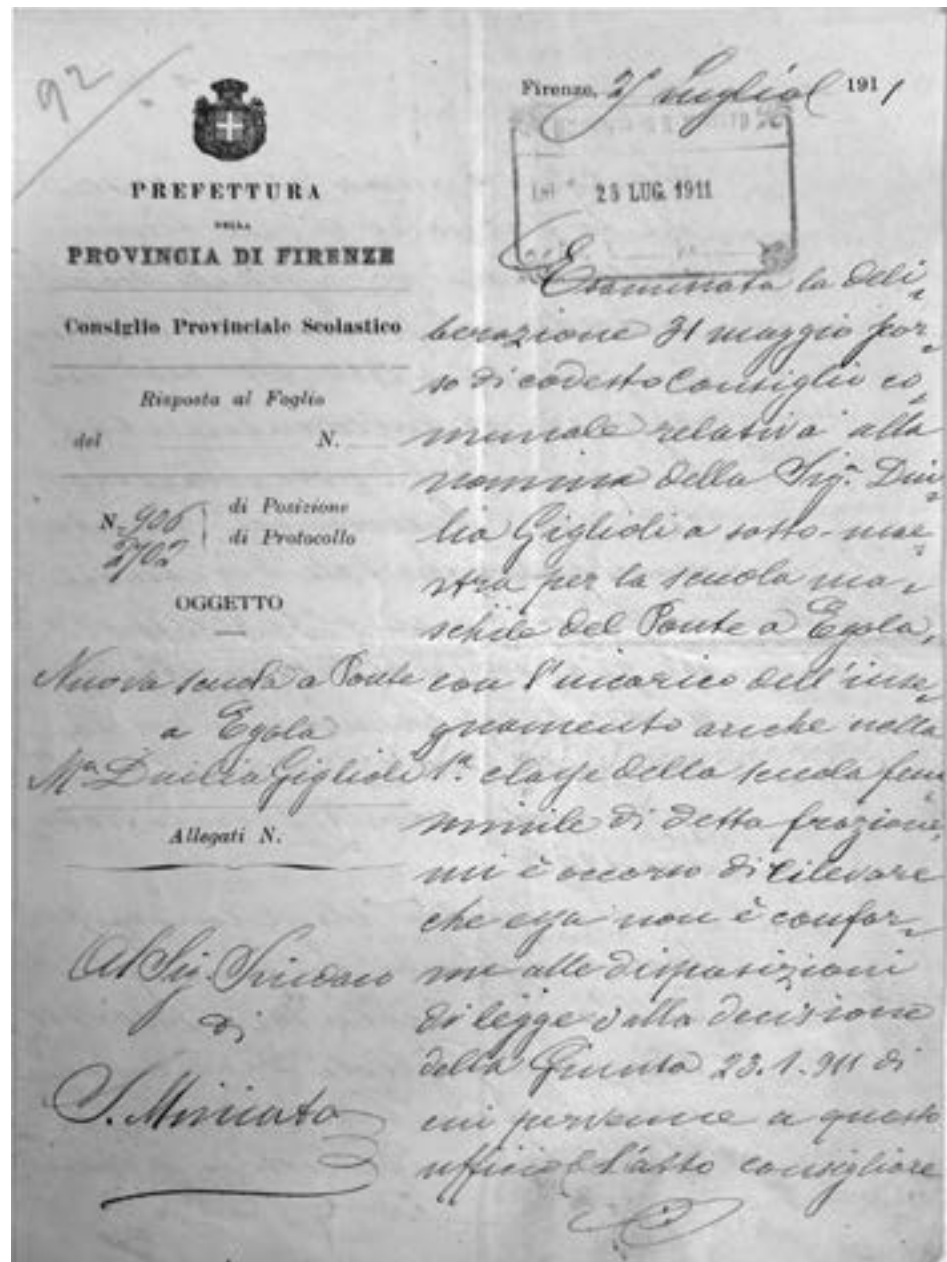 92
Firenze, 27 luglio 1911
28 LUG. 1911
PREFETTURA
DELLA
PROVINCIA DI FIRENZE
Consiglio Provinciale Scolastico
Risposta al Foglio
del N.
N. 906 di Posizione
2702 di Protocollo
OGGETTO
Nuova scuola a Ponte
a Egola
Mª Duilia Giglioli
Allegati N.
Al Sig. Sindaco
di
S. Miniato
Esaminata la deli-
berazione 31 maggio por-
so di codesto Consiglio co-
munale relativa alla
nomina della Sigª Dui-
lia Giglioli a sotto-mae-
stra per la scuola ma-
schile del Ponte a Egola,
con l'incarico dell'inse-
gnamento anche nella
1ª classe della scuola fem
minile di detta frazione,
mi è occorso di rilevare
che essa non è confor-
me alle disposizioni
di legge e alla decisione
della Giunta 23.1.911 di
cui pervenne a questo
ufficio l'atto consigliare